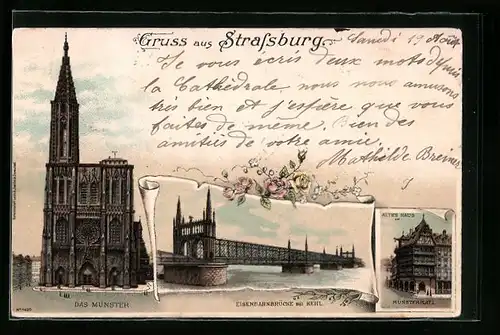 Gruss aus Straſsburg.
Samedi 19 Août
Je vous écris deux mots depuis
la Cathédrale nous nous amusons
très bien et j'espère que vous
faites de même. Bien des
amitiés de votre amie
Mathilde Breiner
ALTES HAUS
MÜNSTERPLATZ.
DAS MÜNSTER
EISENBAHNBRÜCKE BEI KEHL